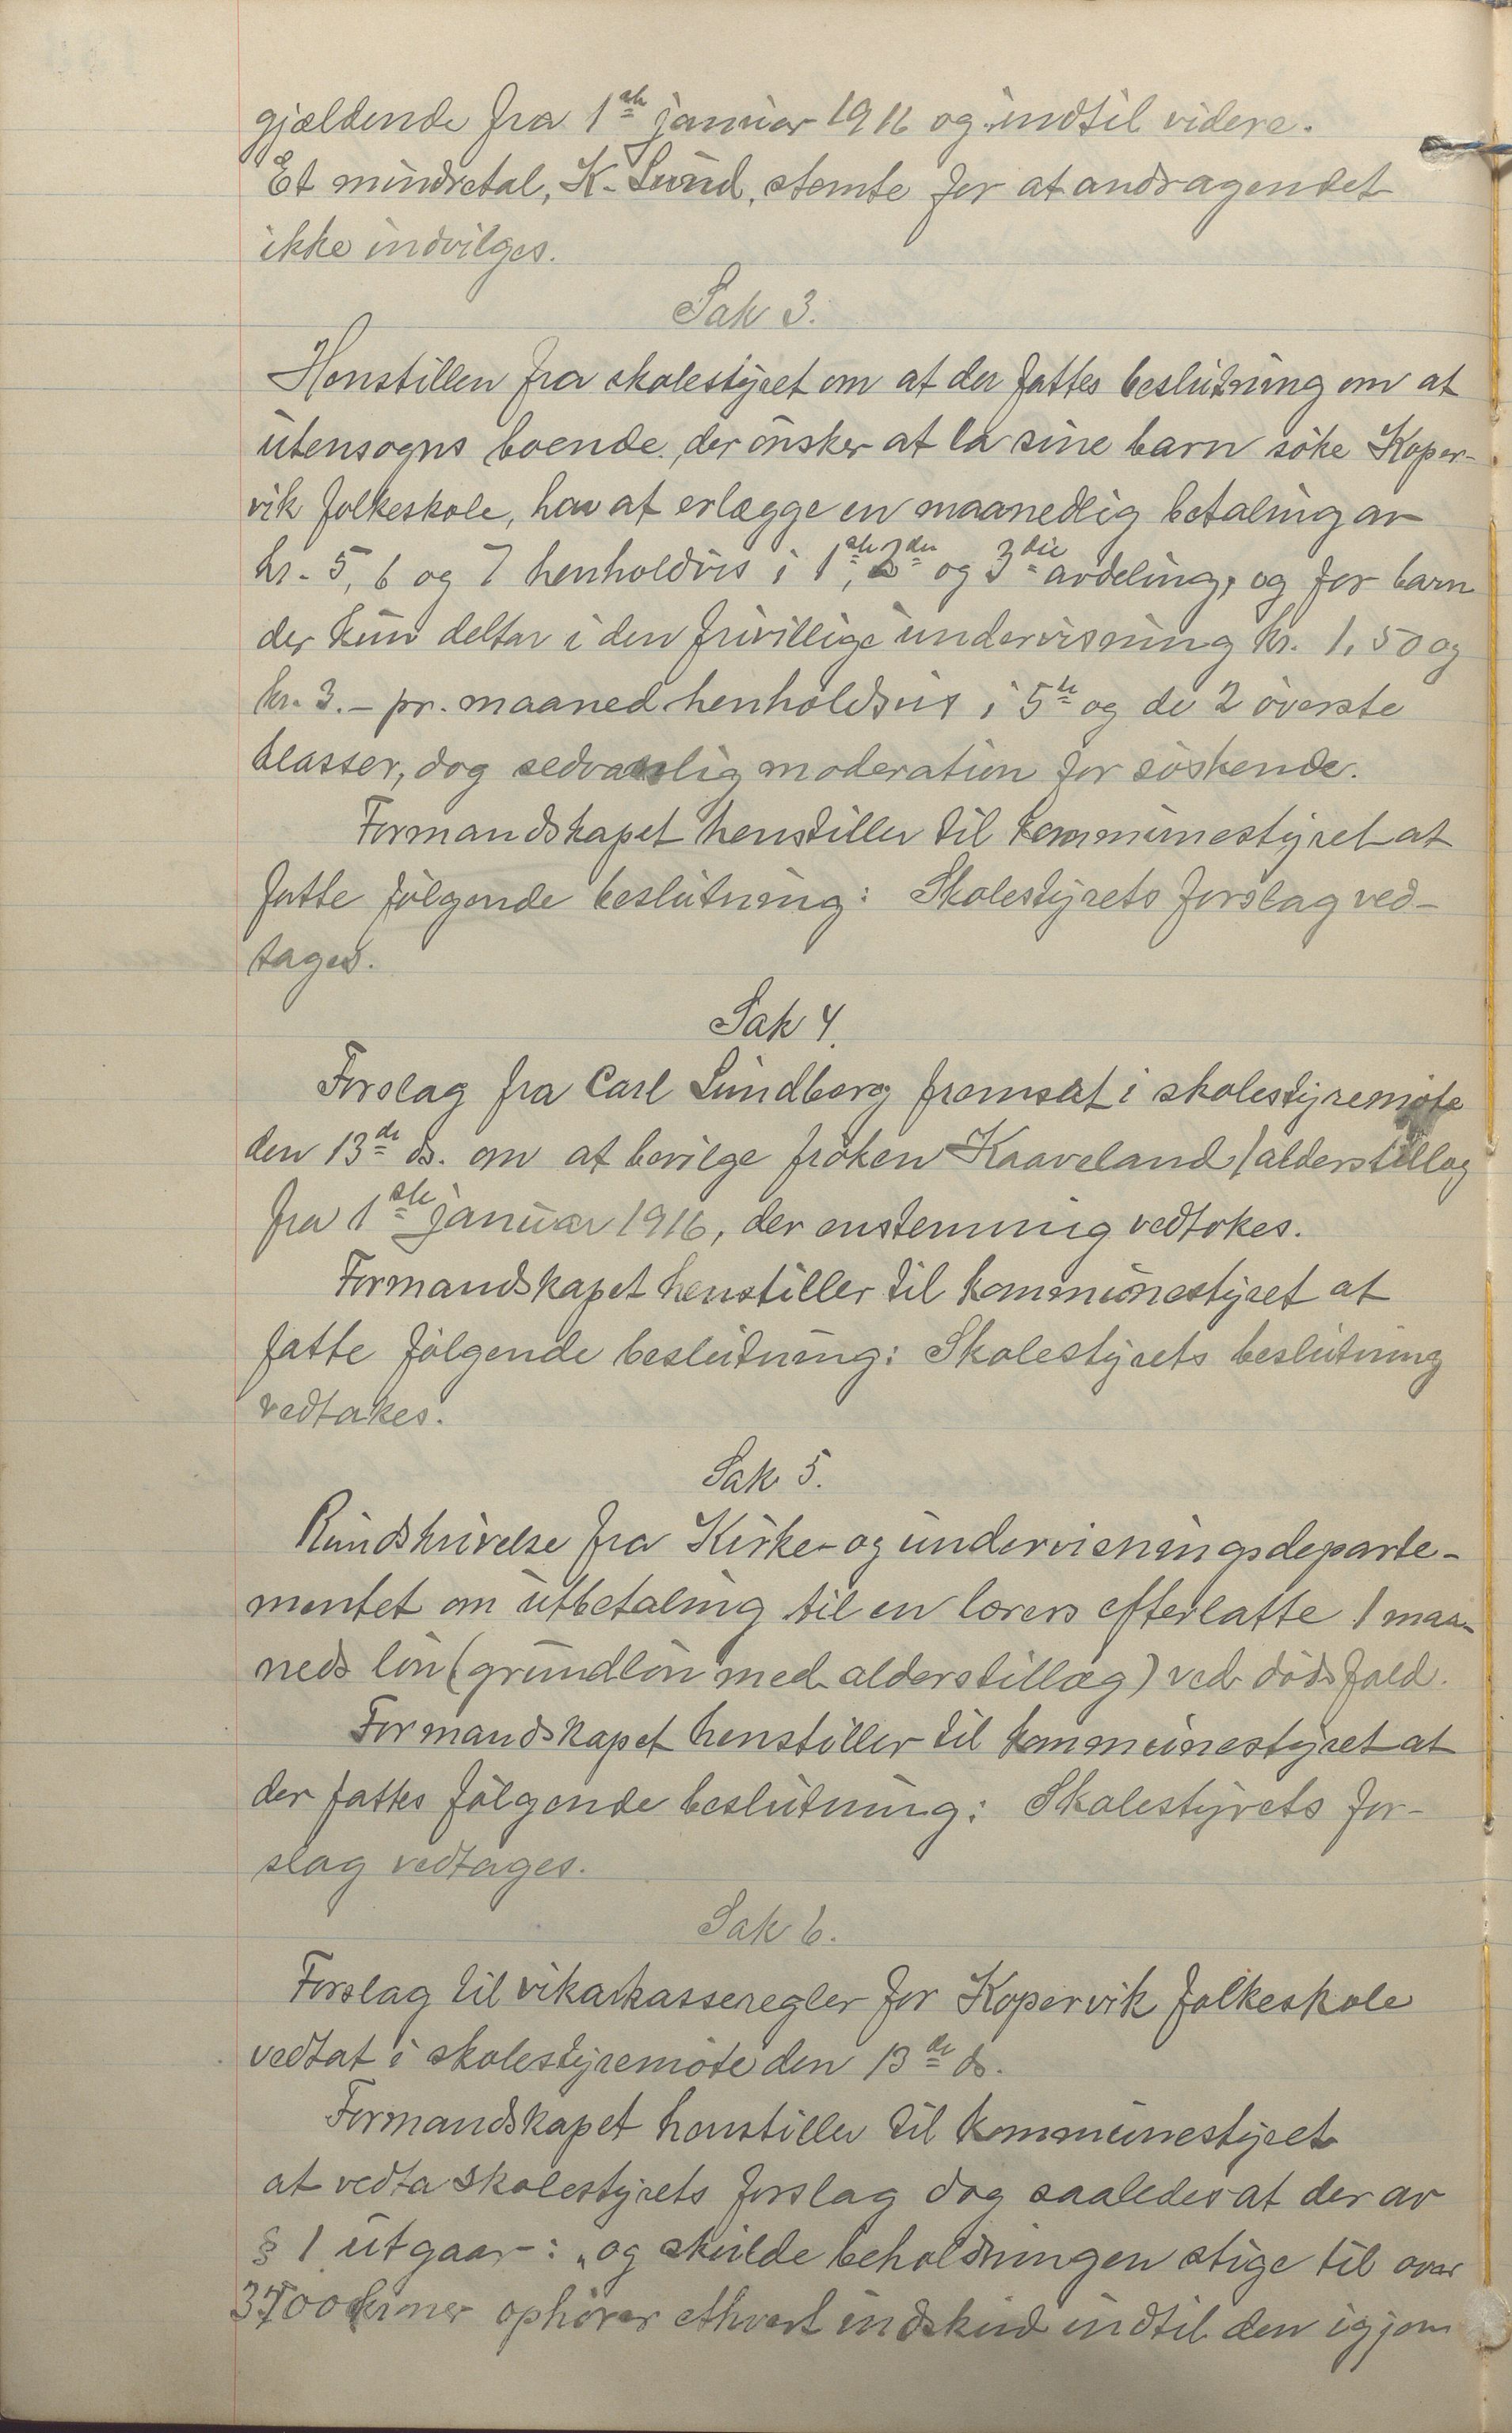 gjældende fra 1ste januar 1916 og indtil videre.
Et mindretal, K. Lund, stemte for at andragendet
ikke indvilges.
Sak 3.
Henstillen fra skolestyret om at der fattes beslutning om at
utensogns boende, der ønsker at la sine barn søke Koper-
vik folkeskole, har at erlægge en maanedlig betaling av
kr. 5, 6 og 7 henholdvis i 1ste, 2den og 3die avdeling, og for barn
der kun deltar i den frivillige undervisning kr. 1,50 og
kr. 3.- pr. maaned henholdsvis i 5te og de 2 øverste
klasser, dog sedvanlig moderation for søskende.
Formandskapet henstiller til kommunestyret at
fatte følgende beslutning: Skolestyrets forslag ved-
tages.
Sak 4.
Forslag fra Carl Lundberg fremsat i skolestyremøte
den 13de ds. om at bevilge frøken Kaaveland 1 alderstillæg
fra 1ste januar 1916, der enstemmig vedtokes.
Formandskapet henstiller til kommunestyret at
fatte følgende beslutning: Skolestyrets beslutning
vedtakes.
Sak 5.
Rundskrivelse fra Kirke- og undervisningsdeparte-
mentet om utbetaling til en lærers efterlatte 1 maa-
neds løn (grundløn med alderstillæg) ved dødsfald.
Formandskapet henstiller til kommunestyret at
der fattes følgende beslutning: Skolestyrets for-
slag vedtages.
Sak 6.
Forslag til vikarkasseregler for Kopervik folkeskole
vedtat i skolestyremøte den 13de ds.
Formandskapet henstiller til kommunestyret
at vedta skolestyrets forslag dog saaledes at der av
§ 1 utgaar: "og skulde beholdningen stige til over
kroner ophører ethvert indskud indtil den igjem